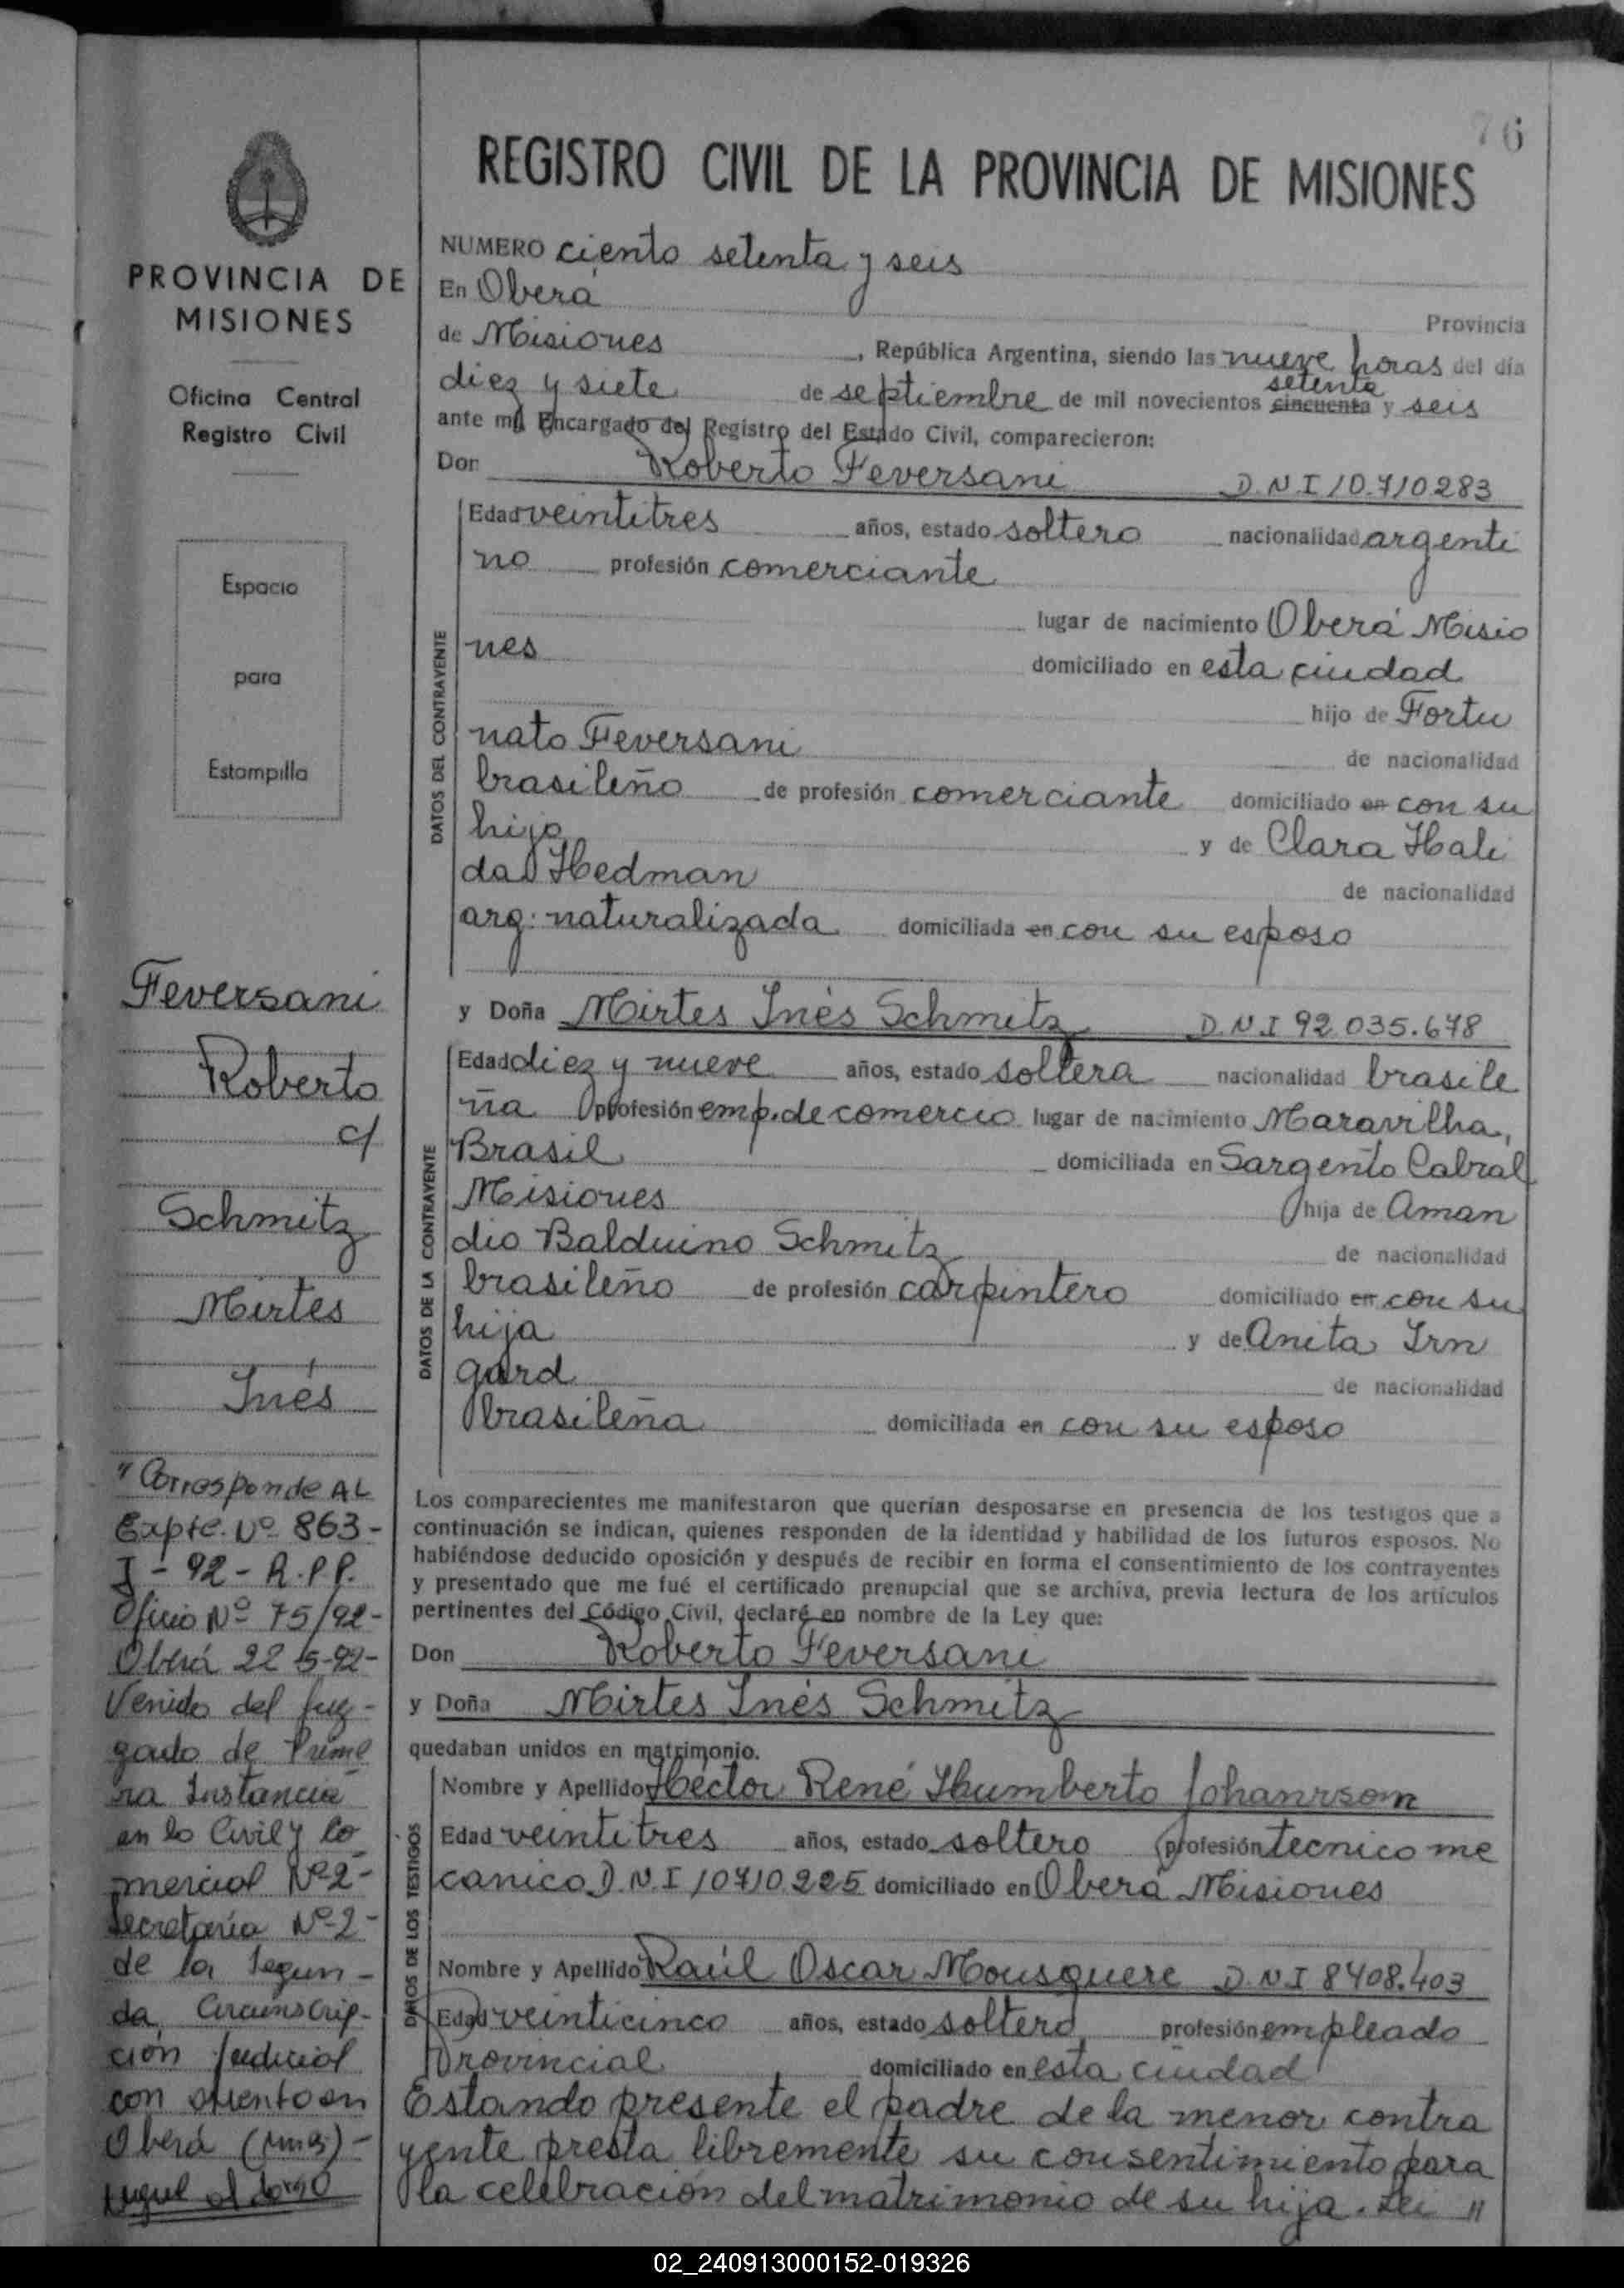 76
REGISTRO CIVIL DE LA PROVINCIA DE MISIONES
PROVINCIA DE
MISIONES
Oficina Central
Registro Civil
Espacio
para
Estampilla
Feversani
Roberto
c/
Schmitz
Mirtes
Inés
"Corresponde AL
Expte. Nº 863-
J-92-R.P.P.
Oficio Nº 75/92-
Oberá 22-5-92-
Venido del Juz-
gado de Prime
ra Instancia
en lo Civil y Co
mercial Nº2-
Secretaría Nº-2-
de la Segun-
da Circunscrip-
ción Judicial
con asiento en
Oberá (Mnes)-
sigue al dorso
NUMERO ciento setenta y seis
En Oberá Provincia
de Misiones, República Argentina, siendo las nueve horas del día
setenta
diez y siete de septiembre de mil novecientos cincuenta y seis
ante mí Encargado del Registro del Estado Civil, comparecieron:
Don Roberto Feversani D.N.I 10.710283
DATOS DEL CONTRAYENTE
Edad veintitres años, estado soltero nacionalidad argenti
no profesión comerciante
lugar de nacimiento Oberá Misio
nes domiciliado en esta ciudad
hijo de Fortu
nato Feversani de nacionalidad
brasileño de profesión comerciante domiciliado en con su
hijo y de Clara Hali
da Hedman de nacionalidad
arg: naturalizada domiciliada en con su esposo
y Doña Mirtes Inés Schmitz D.N.I 92.035.678
DATOS DE LA CONTRAYENTE
Edad diez y nueve años, estado soltera nacionalidad brasile
ña profesión emp. de comercio lugar de nacimiento Maravilha,
Brasil domiciliada en Sargento Cabral
Misiones hija de Aman
dio Balduino Schmitz de nacionalidad
brasileño de profesión carpintero domiciliado en con su
hija y de Anita Irn
gard de nacionalidad
brasileña domiciliada en con su esposo
Los comparecientes me manifestaron que querían desposarse en presencia de los testigos que a
continuación se indican, quienes responden de la identidad y habilidad de los futuros esposos. No
habiéndose deducido oposición y después de recibir en forma el consentimiento de los contrayentes
y presentado que me fué el certificado prenupcial que se archiva, previa lectura de los artículos
pertinentes del Código Civil, declaré en nombre de la Ley que:
Don Roberto Feversani
y Doña Mirtes Inés Schmitz
quedaban unidos en matrimonio.
DATOS DE LOS TESTIGOS
Nombre y Apellido Héctor René Humberto Johanrsom
Edad veintitres años, estado soltero profesión tecnico me
canico D.N.I 10710.225 domiciliado en Oberá Misiones
Nombre y Apellido Raúl Oscar Mousquere D.N.I 8408.403
Edad veinticinco años, estado soltero profesión empleado
Provincial domiciliado en esta ciudad
Estando presente el padre de la menor contra
yente presta libremente su consentimiento para
la celebración del matrimonio de su hija. Lei "
02_240913000152-019326